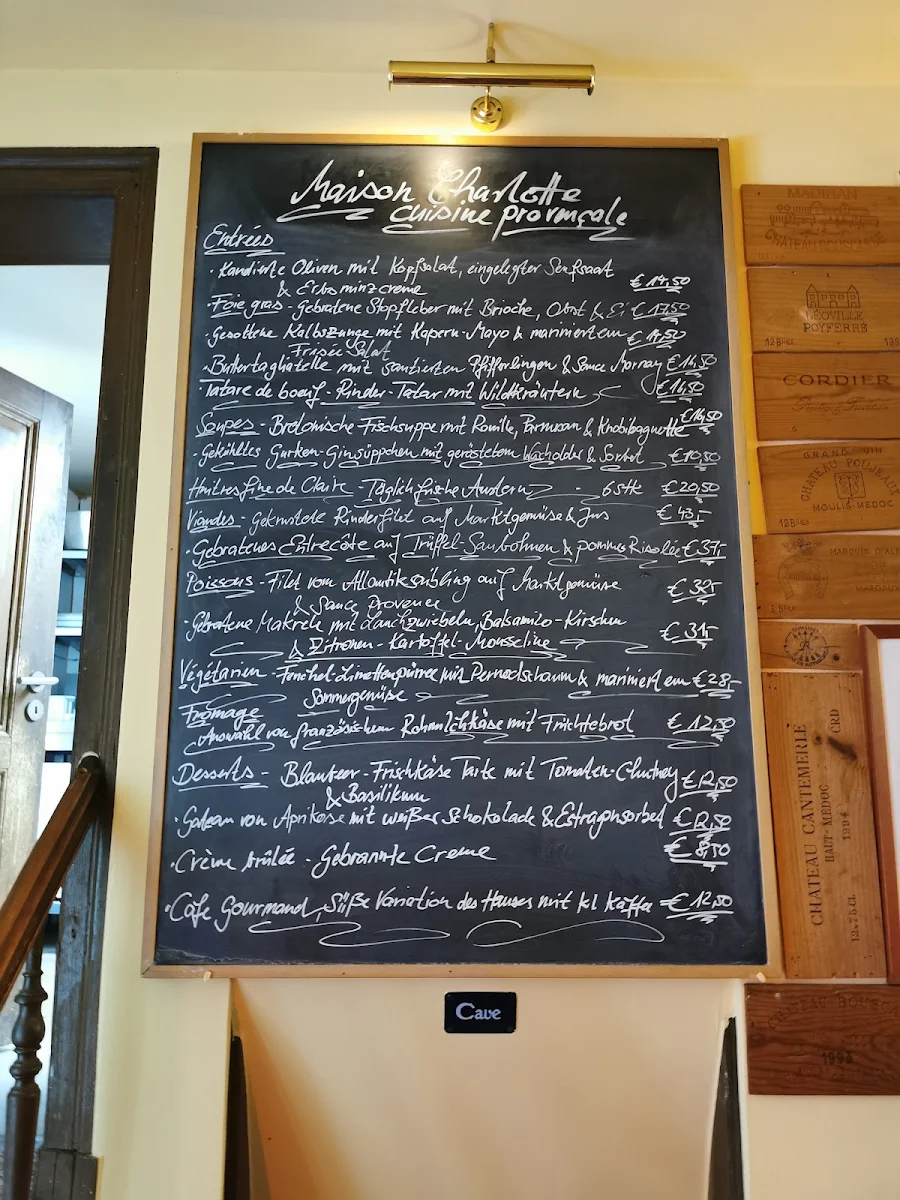 Maison Charlotte
cuisine provençale
Entrées
· Kandierte Oliven mit Kopfsalat, eingelegter Senfsaat
& Erbsminzcreme € 14,50
· Foie gras - Gebratene Stopfleber mit Brioche, Obst & Ei € 17,50
· Gesottene Kalbszunge mit Kapern-Mayo & mariniertem € 14,50
Frisée-Salat
· Buttertagliatelle mit sautierten Pfifferlingen & Sauce Mornay € 16,50
· Tatare de boeuf - Rinder-Tatar mit Wildkräutern € 16,50
Soupes - Bretonische Fischsuppe mit Rouille, Parmesan & Knobibaguette € 14,50
· Gekühltes Gurken-Ginsüppchen mit geröstetem Wacholder & Sorbet € 10,50
Huitres fine de Claire - Täglich frische Austern - 6 Stk € 20,50
Viandes - Gekrustete Rinderfilet auf Marktgemüse & Jus € 43,-
· Gebratenes Entrecôte auf Trüffel-Saubohnen & pommes Risolée € 37,-
Poissons - Filet vom Atlantiksaibling auf Marktgemüse € 32,-
& Sauce Provence
· Gebratene Makrele mit Lauchzwiebeln, Balsamico-Kirschen € 31,-
& Zitronen-Kartoffel-Mousseline
Végétarien - Fenchel-Limettenpüree mit Pernodschaum & mariniertem € 28,-
Sommergemüse
Fromage
Auswahl von französischem Rohmilchkäse mit Früchtebrot € 12,50
Desserts - Blaubeer-Frischkäse Tarte mit Tomaten-Chutney € 12,50
& Basilikum
· Gateau von Aprikose mit weißer Schokolade & Estragonsorbet € 12,50
· Crème brûlée - Gebrannte Creme € 8,50
· Café Gourmand, Süße Variation des Hauses mit kl Kaffee € 12,50
Cave
MADIRAN
LÉOVILLE
POYFERRÉ
12 Bles
CORDIER
GRAND VIN
CHATEAU POUJEAUX
MOULIS-MEDOC
12 Bles
MARQUIS D'AL
MARGAUX
CHATEAU CANTEMERLE
HAUT-MÉDOC CRD
1994
12x75cl
1993